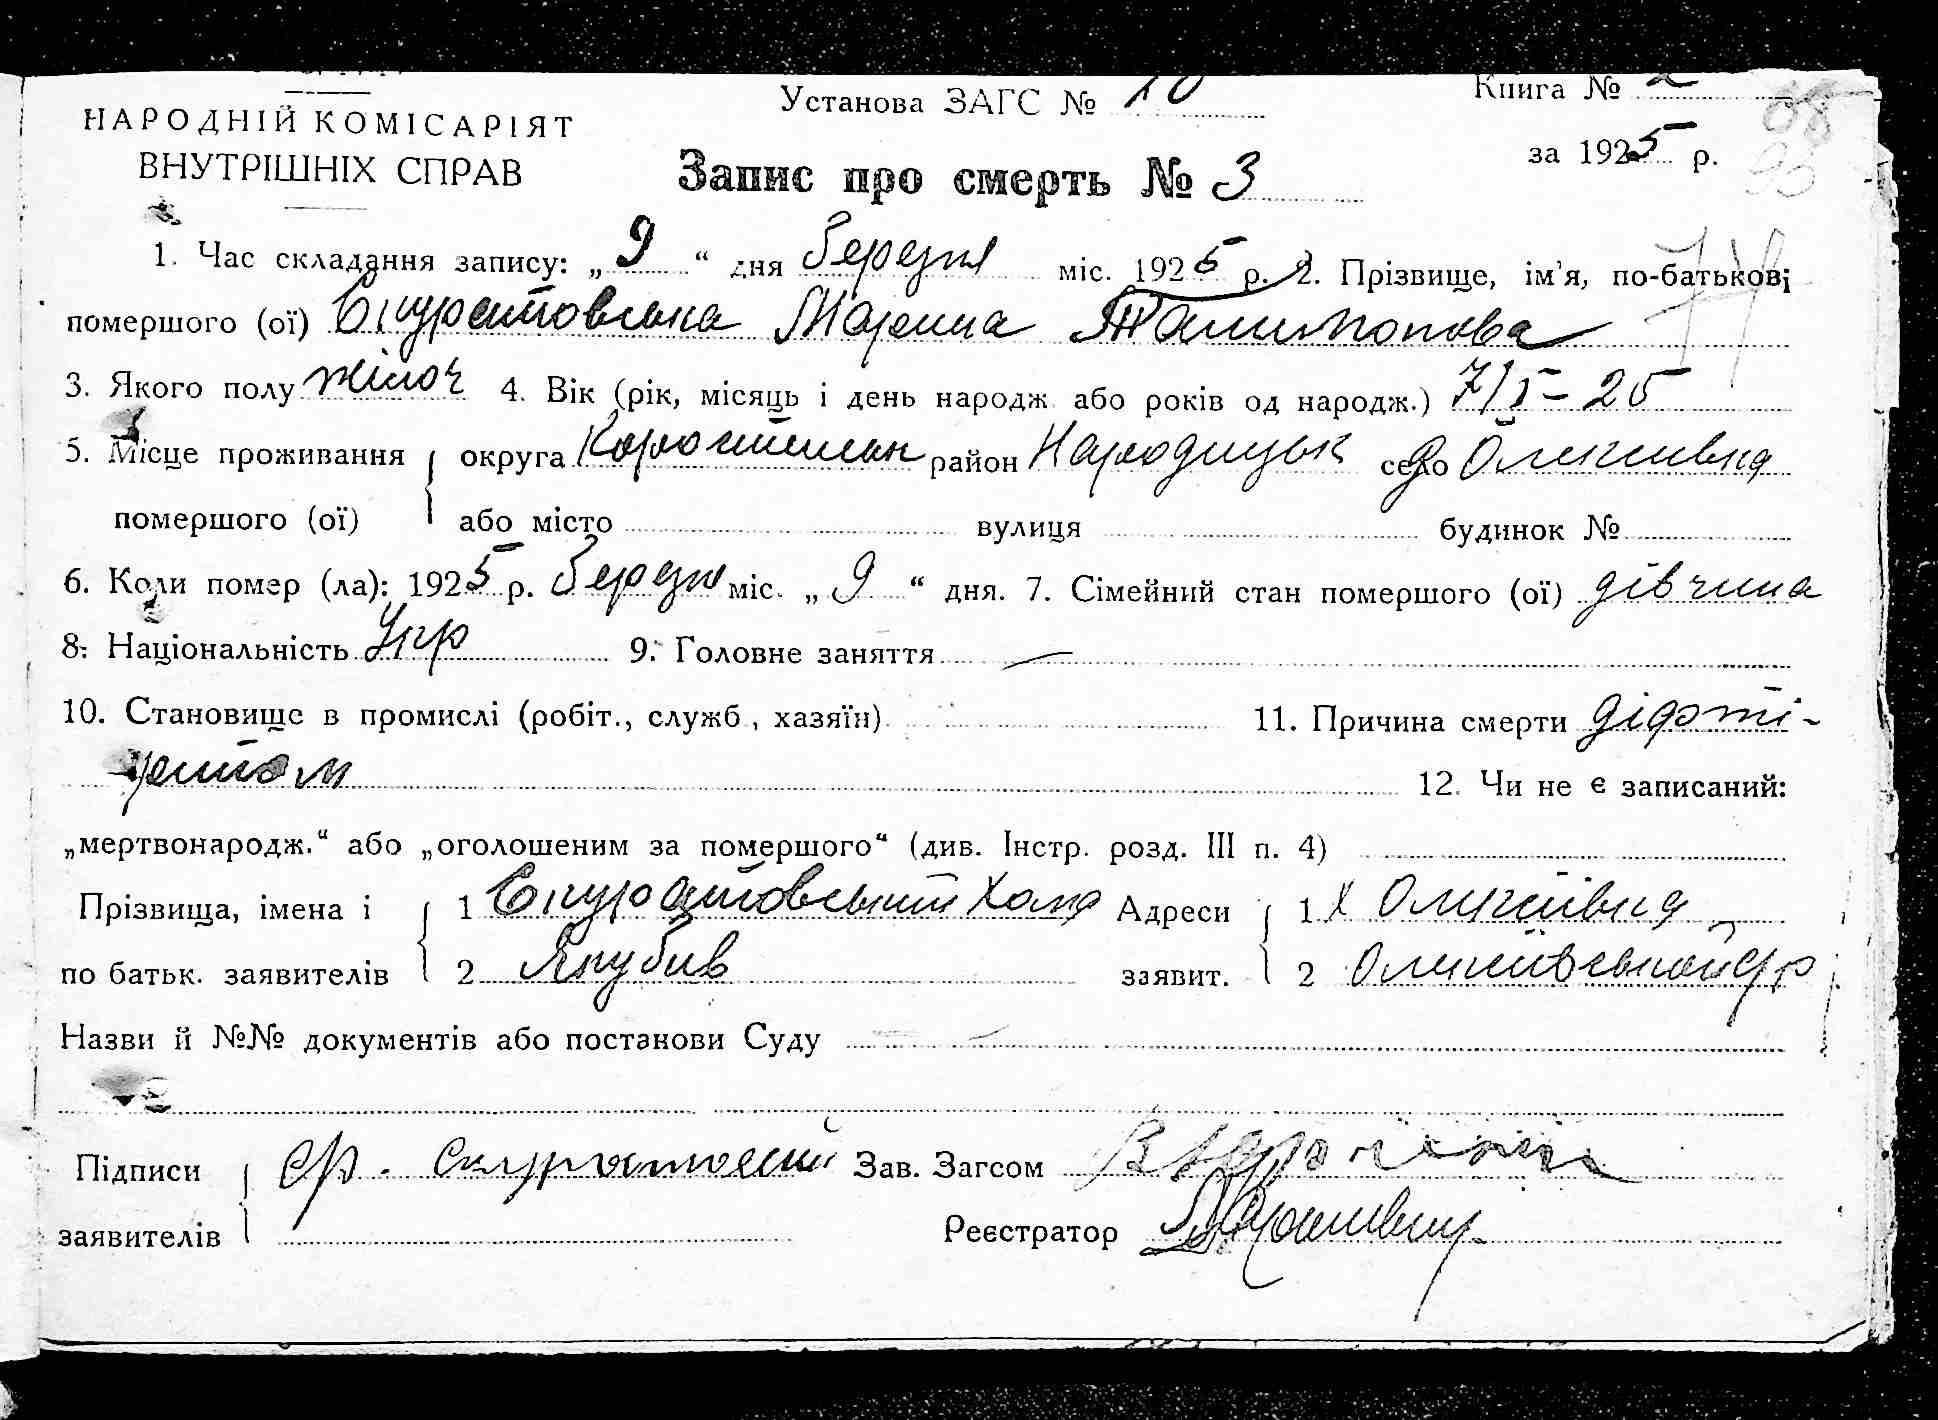 НАРОДНІЙ КОМІСАРІЯТ
ВНУТРІШНІХ СПРАВ
Установа ЗАГС № 10
Книга № 2
за 1925 р.
Запис про смерть № 3
1. Час складання запису: „ 9 “ дня Березня міс. 1925 р. 2. Прізвище, ім’я, по-батькові
помершого (ої) Скуратовська Марина
3. Якого полу жіноч 4. Вік (рік, місяць і день народж. або років од народж.) 7/I – 25
5. Місце проживання округа Коростенськ район Народицьк село Олексіївка
помершого (ої) або місто вулиця будинок №
6. Коли помер (ла): 1925 р. Березня міс. „ 9 “ дня. 7. Сімейний стан помершого (ої) дівчина
8. Національність Укр 9. Головне заняття —
10. Становище в промислі (робіт., служб., хазяїн) 11. Причина смерти діфті-
рітом 12. Чи не є записаний:
„мертвонародж.“ або „оголошеним за помершого“ (див. Інстр. розд. III п. 4)
Прізвища, імена і 1 Скуратовський Хома Адреси 1 Х Олексіївка
по батьк. заявителів 2 Якубів заявит. 2
Назви й №№ документів або постанови Суду —
Підписи Скуратовский Зав. Загсом
заявителів Реєстратор